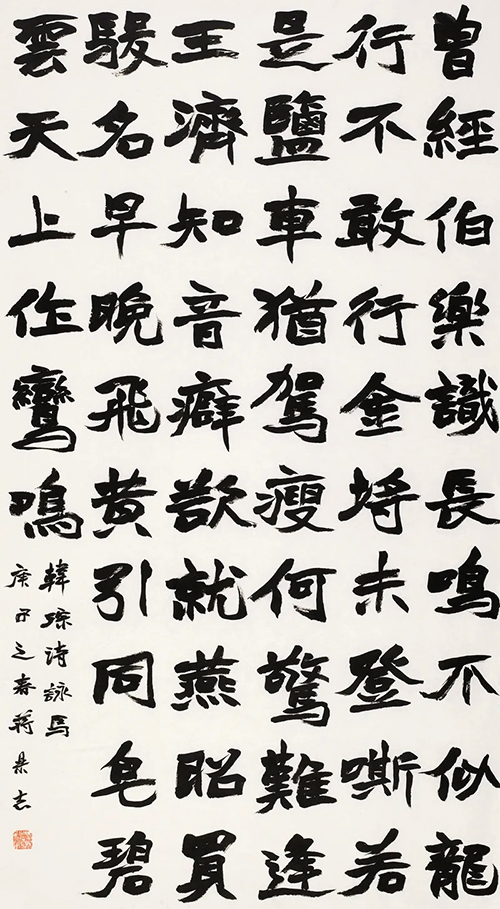 曾經伯樂識長鳴不似龍
行不敢行金埒未登嘶若
是鹽車猶駕瘦何驚難逢
王濟知音癖欲就燕昭買
駿名早晚飛黃引同皂碧
雲天上作鸞鳴
韓琮詩詠馬
庚子之春蔣